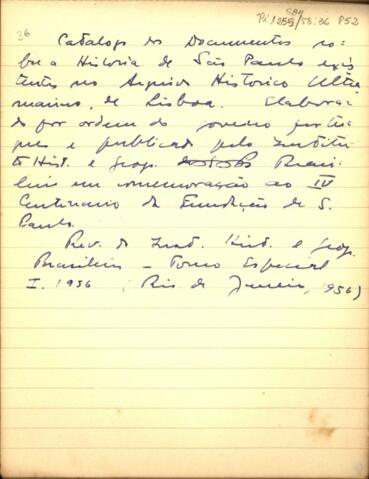 SBH
Pi 255/58:36 P52
36
Catalogo dos Documentos so-
bre a Historia de São Paulo exis
tentes no Arquivo Historico Ultra
marino, de Lisboa. Elabora-
do por ordem do governo portu
guês e publicado pelo Institu
to Hist. e Geog. Brasi-
leiro em comemoração ao IV
Centenario da Fundação de S.
Paulo.
Rev. do Inst. Hist. e Geog.
Brasileiro – Tomo Especial
I. 1956 (Rio de Janeiro, 1956)